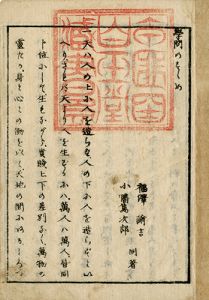 學問のすゝめ
福澤諭吉
小幡篤次郎
同著
一天ハ人の上に人を造らず人の下に人を造らずとい
へりされバ天より人を生ずるにハ萬人ハ萬人皆同じ
位にして生れながら貴賤上下の差別なく萬物の
靈たる身と心との働を以て天地の間にある